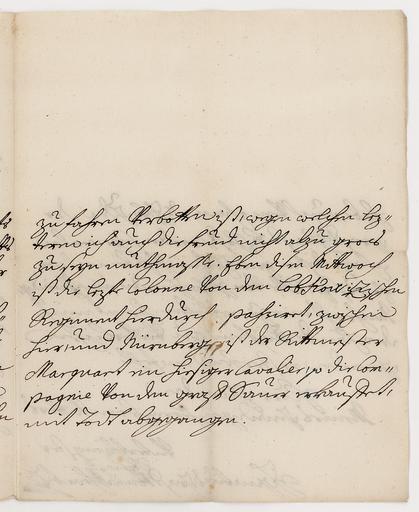 zu fahren verbotten ist, wegen welchen lez-
teren ich auch die freud nicht alzu gros
zu seyn muthmasse. Eben disen Mittwoch
ist die lezte Colonne von dem Lobkowizischen
Regiment hierdurch pahsiret, zwischen
hier und Nürnberg ist der Rittmeister
Marquart ein hiesiger Cavalier, so die Com-
pagnie von dem graf Sauer erkauffet,
mit Todt abgegangen.